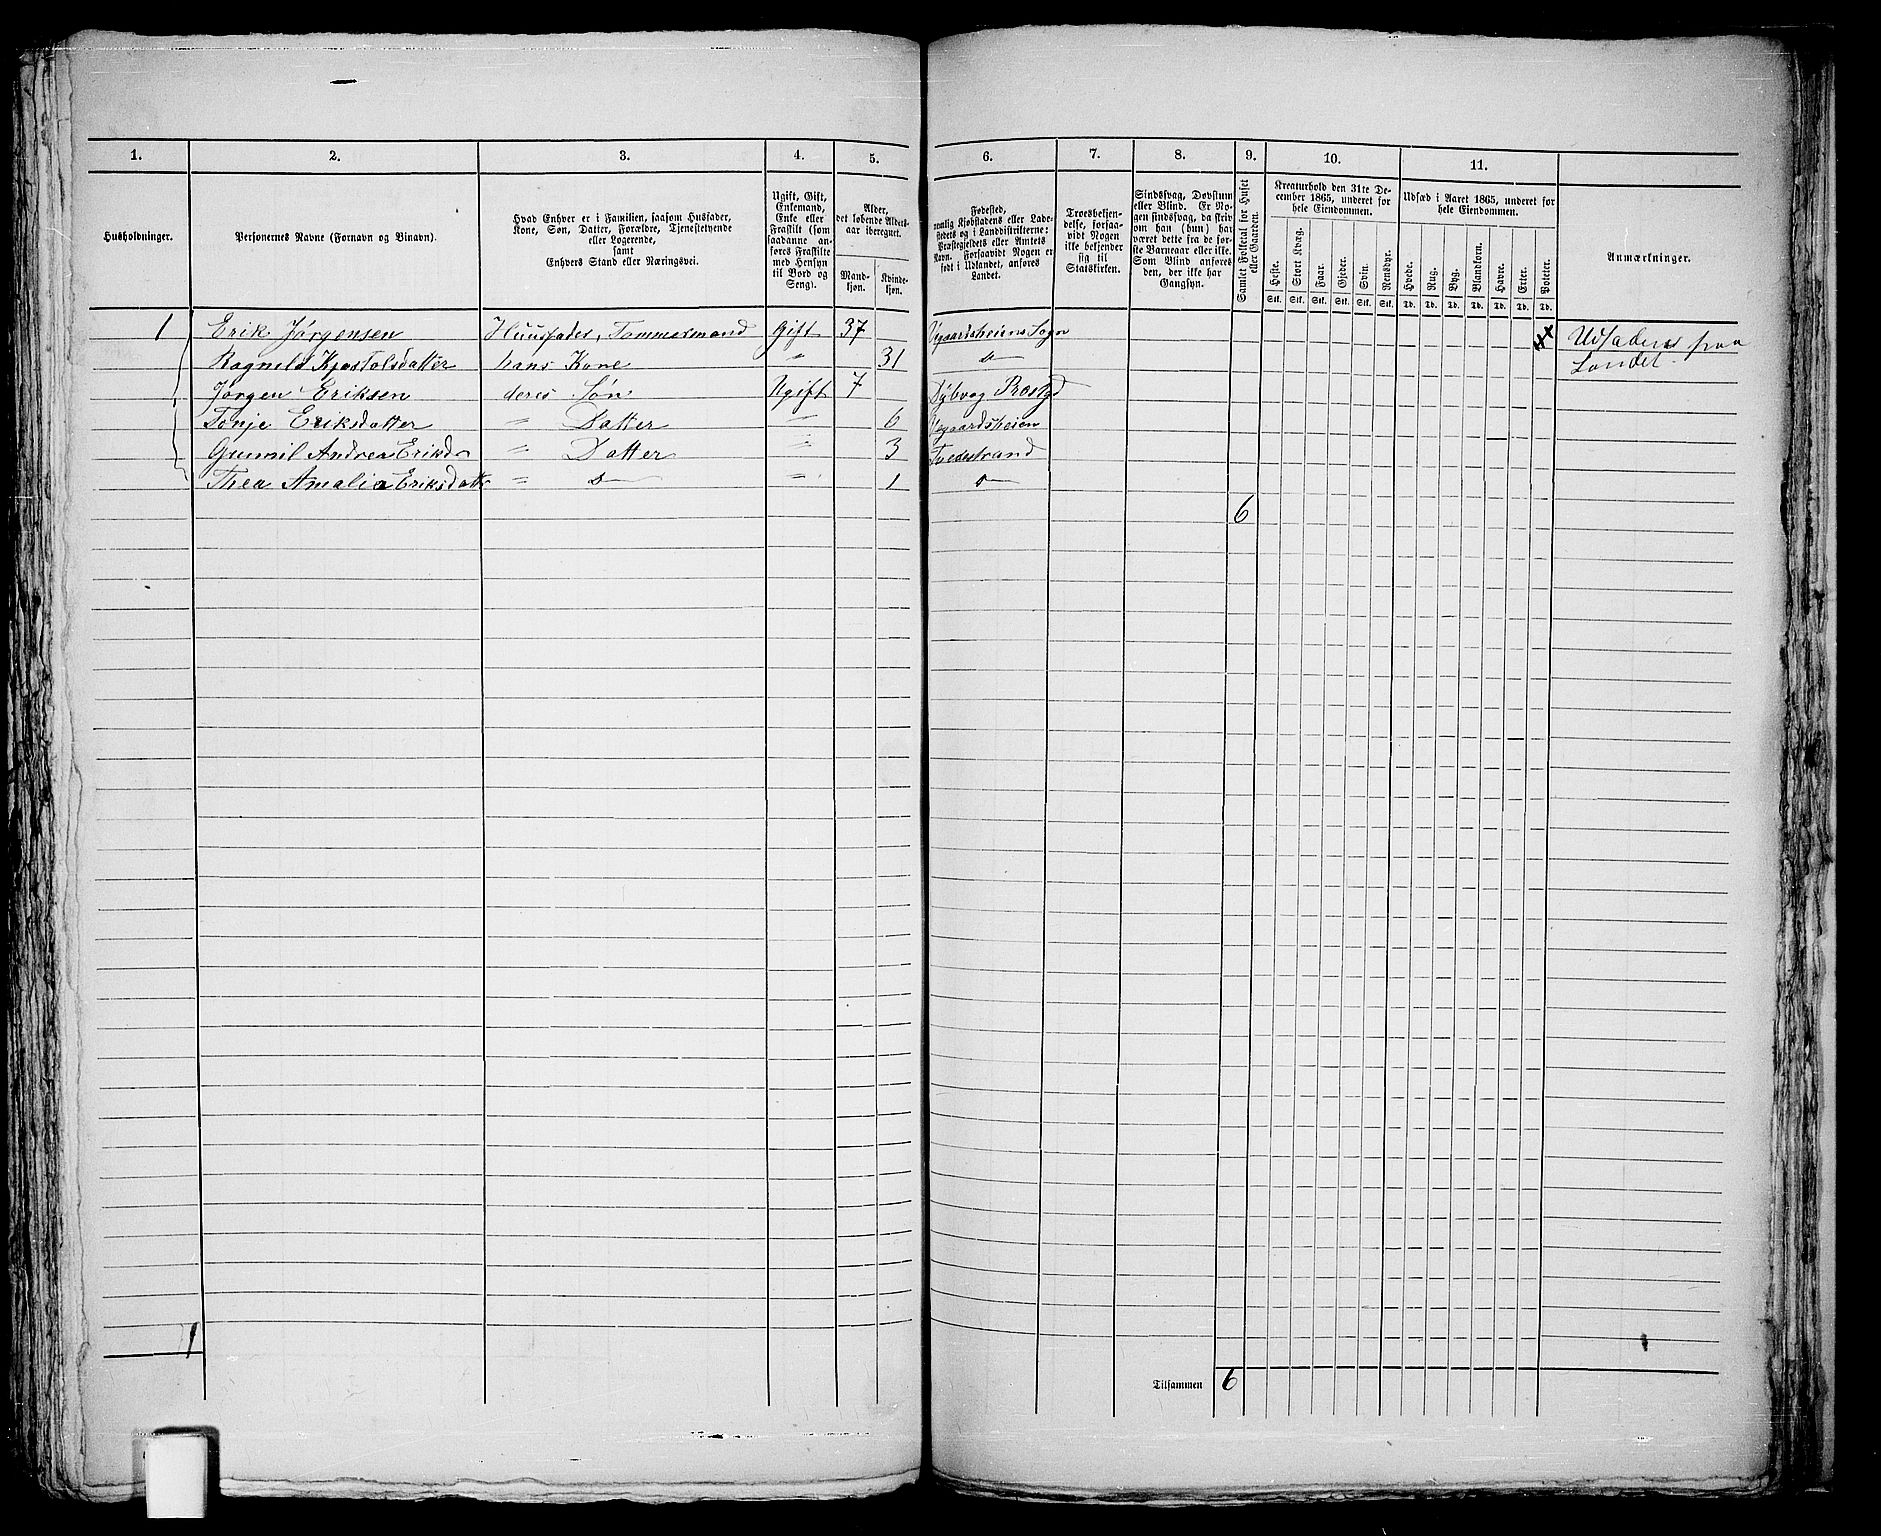 1. 2. 3. 4. 5. 6. 7. 8. 9. 10. 11.
Husholdninger.
Personernes Navne (Fornavn og Binavn).
Hvad Enhver er i Familien, saasom Husfader,
Kone, Søn, Datter, Forældre, Tjenestetyende
eller Logerende,
samt
Enhvers Stand eller Næringsvei.
Ugift, Gift,
Enkemand,
Enke eller
Fraskilt (som
saadanne an-
føres Fraskilte
med Hensyn
til Bord og
Seng).
Alder,
det løbende Alders-
aar iberegnet.
Mand-
kjøn.
Kvinde-
kjøn.
Fødested,
nemlig Kjøbstadens eller Lade-
stedets og i Landdistrikterne:
Præstegjeldets eller Amtets
Navn. Forsaavidt Nogen er
født i Udlandet, anføres
Landet.
Troesbekjen-
delse, forsaa-
vidt Nogen
ikke bekjender
sig til
Statskirken.
Sindssvag, Døvstum
eller Blind. Er No-
gen sindssvag, da skriv
om han (hun) har
været dette fra de før-
ste Barneaar eller ikke.
Som Blind anføres
den, der ikke har
Gangsyn.
Samlet Folketal for Huset
eller Gaarden.
Kreaturhold den 31te De-
cember 1865, underet for
hele Eiendommen.
Heste. Stort Kvæg. Faar. Gjeder. Svin. Rensdyr.
Stk. Stk. Stk. Stk. Stk. Stk.
Udsæd i Aaret 1865, underet for
hele Eiendommen.
Hvede. Rug. Byg. Blandkorn. Havre. Erter. Poteter.
Td. Td. Td. Td. Td. Td. Td.
Anmærkninger.
1 Erik Jørgensen Huusfader, Tømmermand Gift 37 Vegaardsheiens Sogn x Udflyttet paa
Ragnild hans Kone " 31 D Landet.
Jørgen Eriksen deres Søn Ugift 7 Dybvag Præstgd
Tonje Eriksdatter " Datter " 6 Vegaardsheien
Gunnil Andrea Eriksd " Datter " 3 Tvedestrand
Thea Amalia Eriksdatter " D " 1 D
6
1
Tilsammen 6